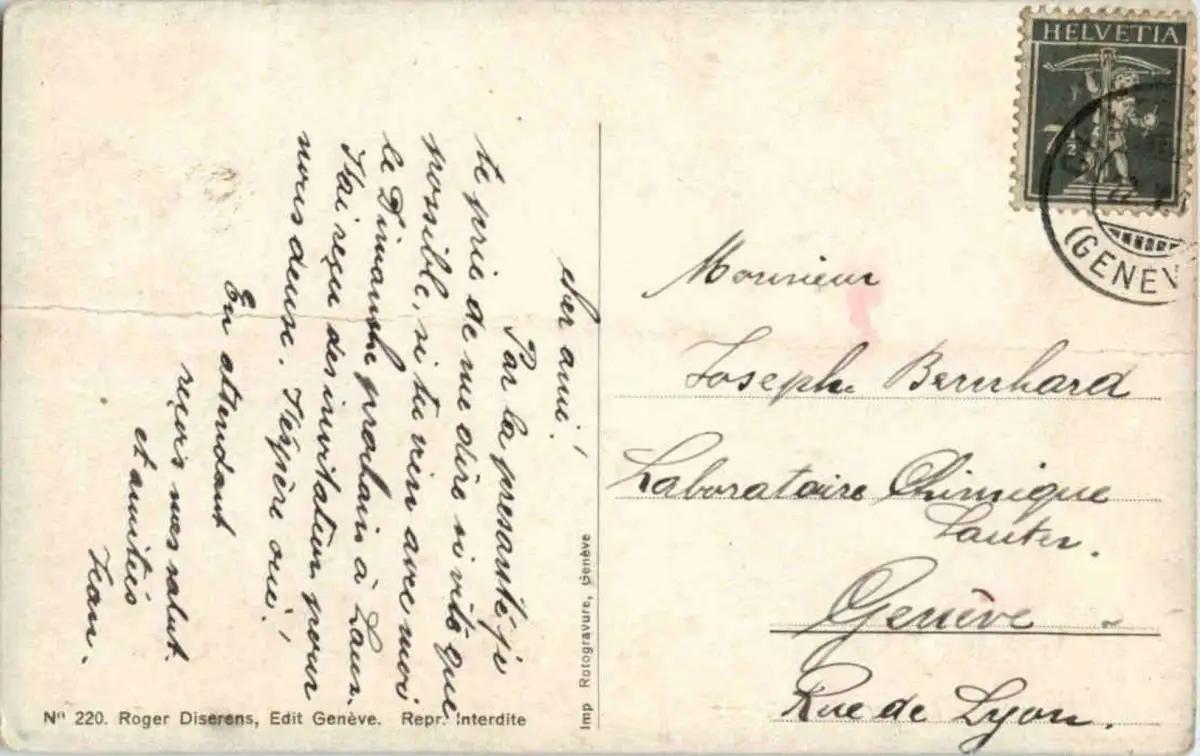 cher ami!
Par la presante, je
te prie de me dire si vite que
possible, si tu vien avec moi
le Dimanche prochain à Laus.
J'ai reçu des invitation pour
nous deuse. J'éspère oui!
En attendant
reçois mes salut
et amitiés
Jean.
HELVETIA
(GENÈV
Monsieur
Joseph Bernhard
Laboratoire Chimique
Lauter.
Genève
Rue de Lyon.
Imp Rotogravure, Genève
Nº 220. Roger Diserens, Edit Genève. Repr. Interdite